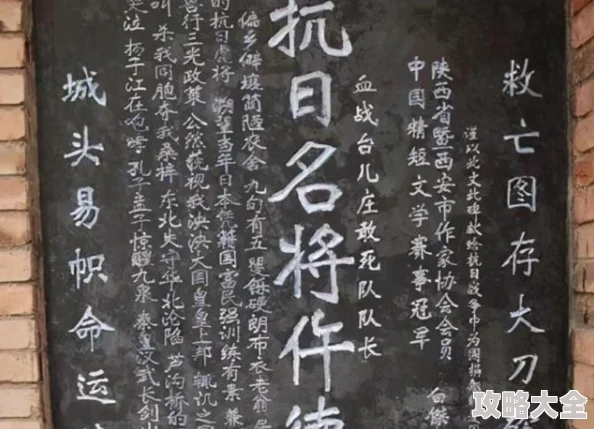 救亡图存大刀
谨以此文此碑献给抗日战争中为国捐
陕西省暨西安市作家协会会员 白傑
中国精短文学赛事冠军
血战台儿庄敢死队队长
抗日名将仵德
偏乡僻壤简陋农舍 九旬有五 矍铄硬朗 布衣老翁 居
的抗日虎将 溯望当年 日本任藉国富民强 训练有素 兼
兽行 三光政策 公然藐视我泱泱大国皇皇上邦 辄讥之
叫 杀我同胞 夺我桑梓 东北失守 华北沦陷 芦沟桥的
哭泣 扬子江在咆哮 孔子孟子 惊赠九泉 秦皇汉武 长剑出
城头易帜命运
攻略大全